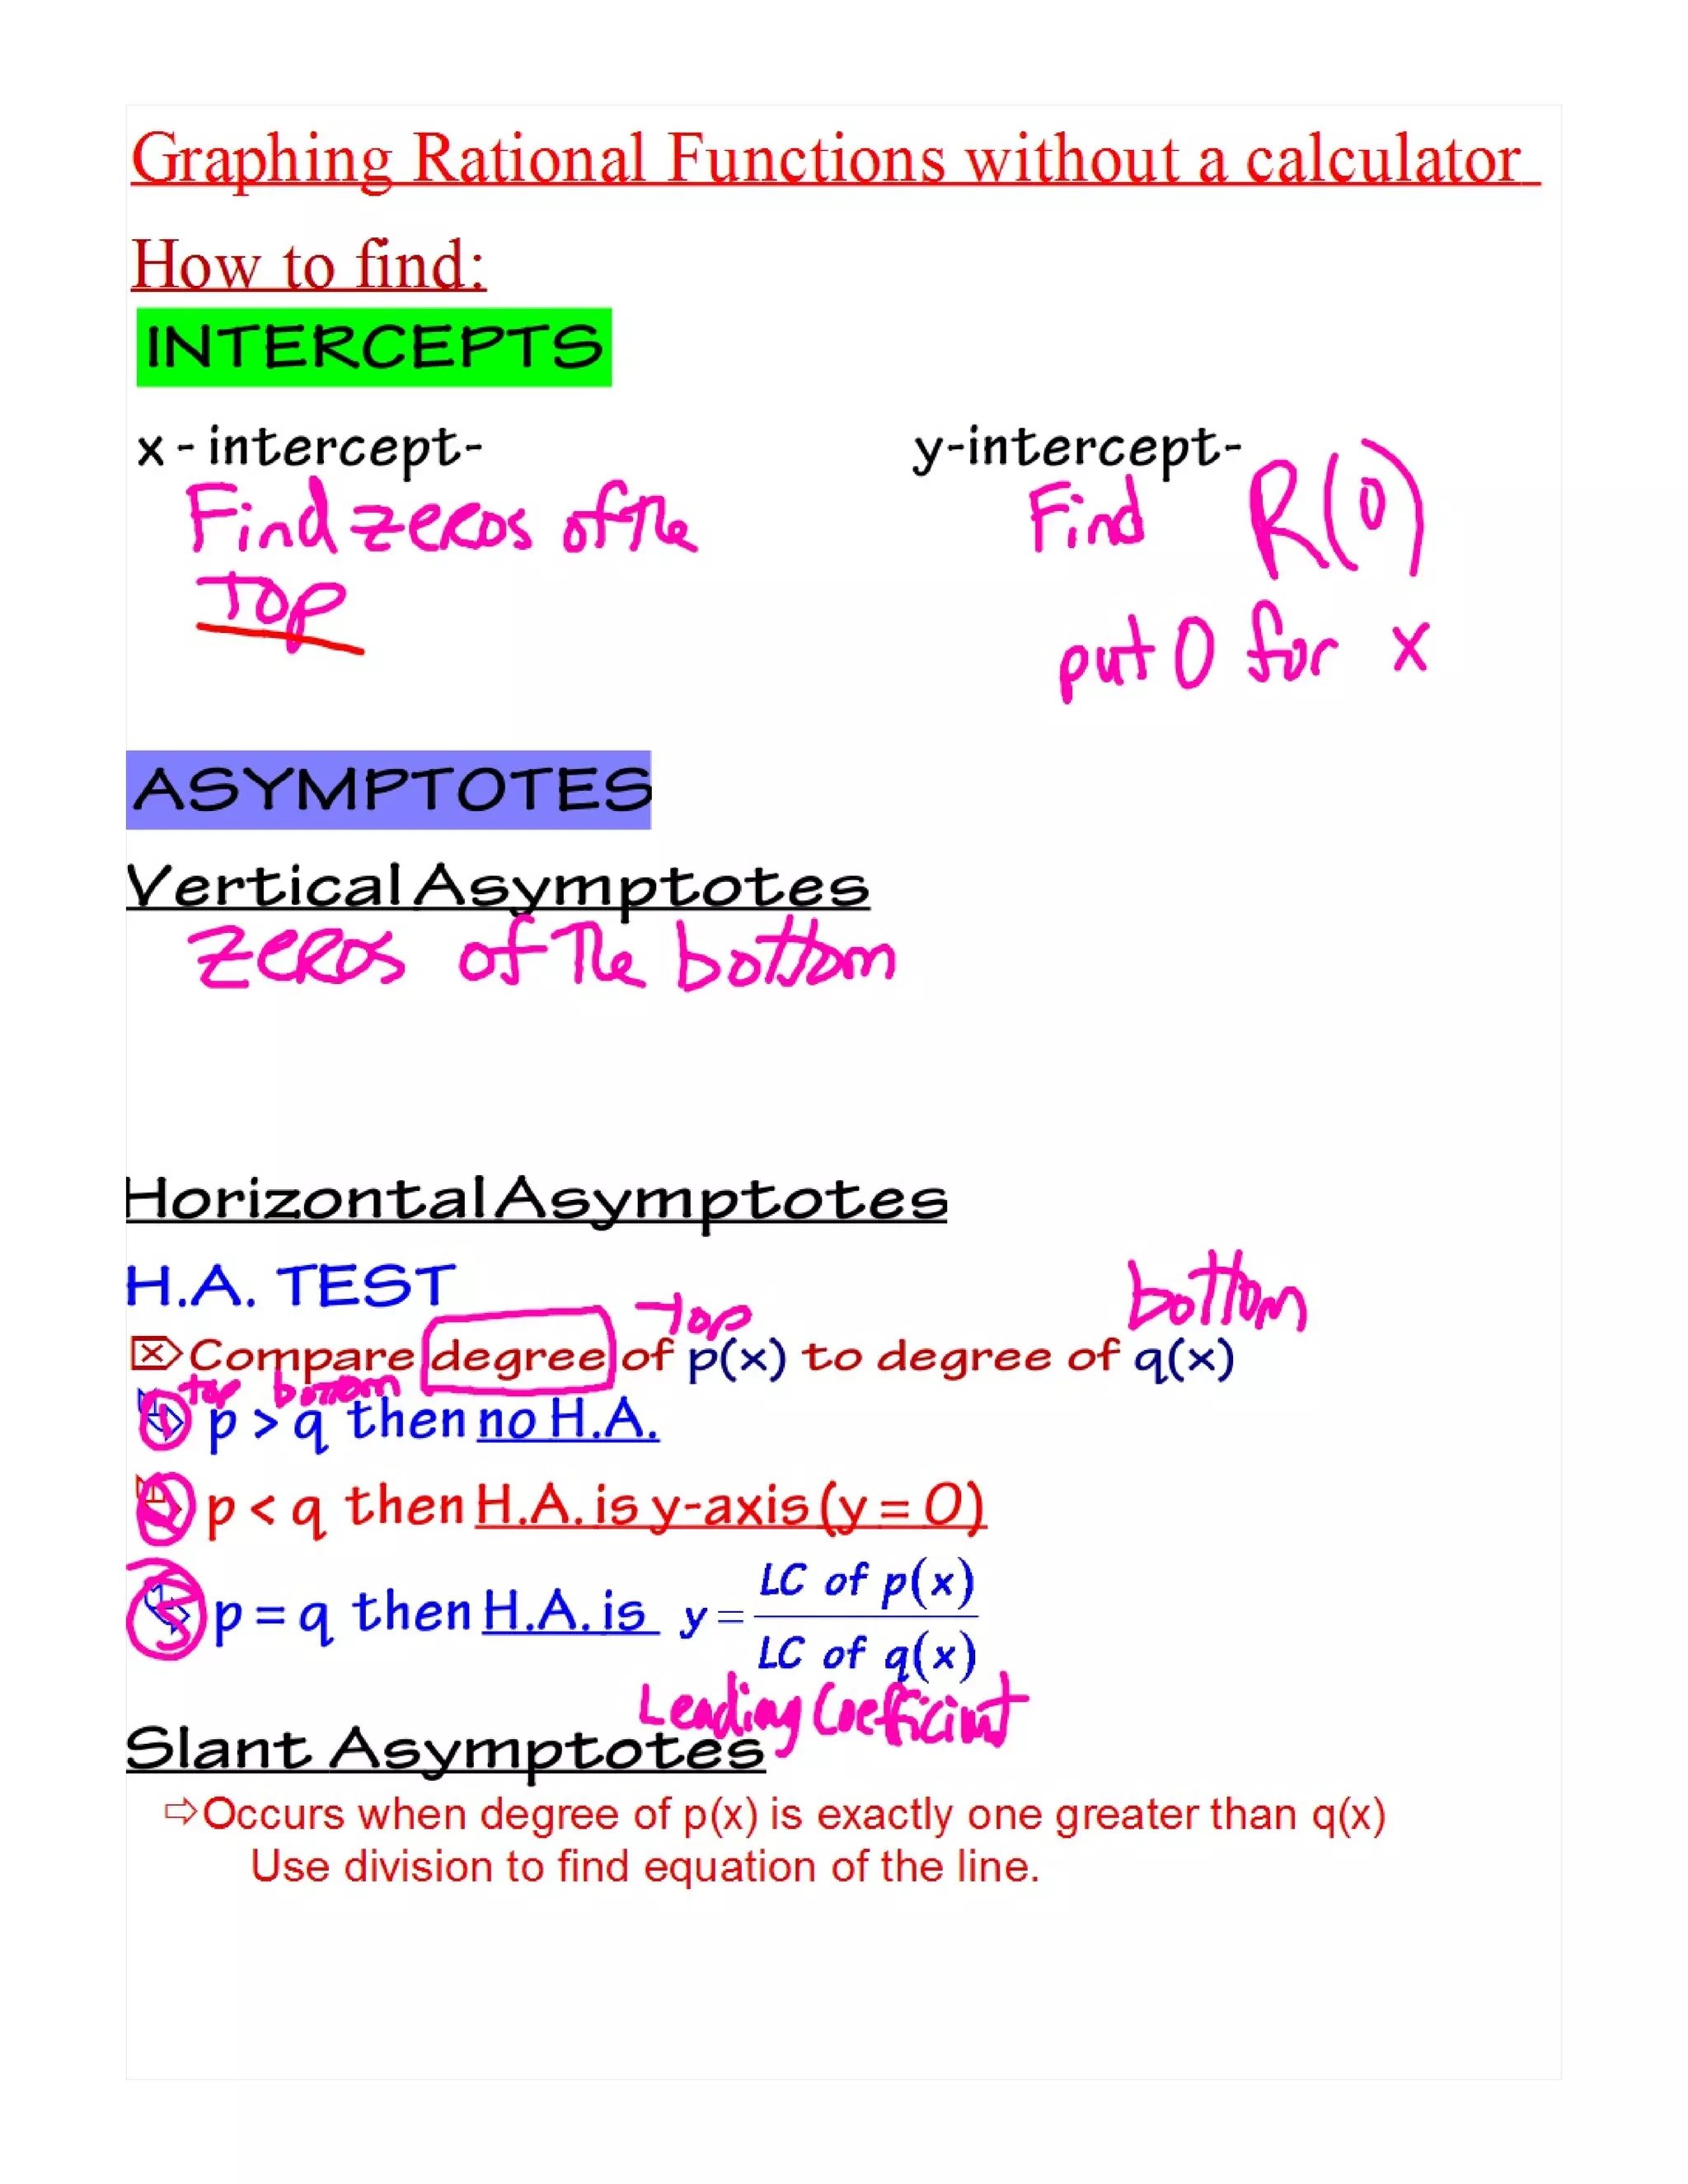 Graphing Rational Functions without a calculator
How to find:
INTERCEPTS
x - intercept-
Find zeros of the
Top
y-intercept-
Find R(0)
put 0 for x
ASYMPTOTES
Vertical Asymptotes
zeros of the bottom
Horizontal Asymptotes
H.A. TEST
Top bottom
Compare degree of p(x) to degree of q(x)
top bottom
1 p > q then no H.A.
2 p < q then H.A. is y-axis (y = 0)
3 p = q then H.A. is y = LC of p(x) / LC of q(x)
Leading Coefficient
Slant Asymptotes
⇨Occurs when degree of p(x) is exactly one greater than q(x)
Use division to find equation of the line.